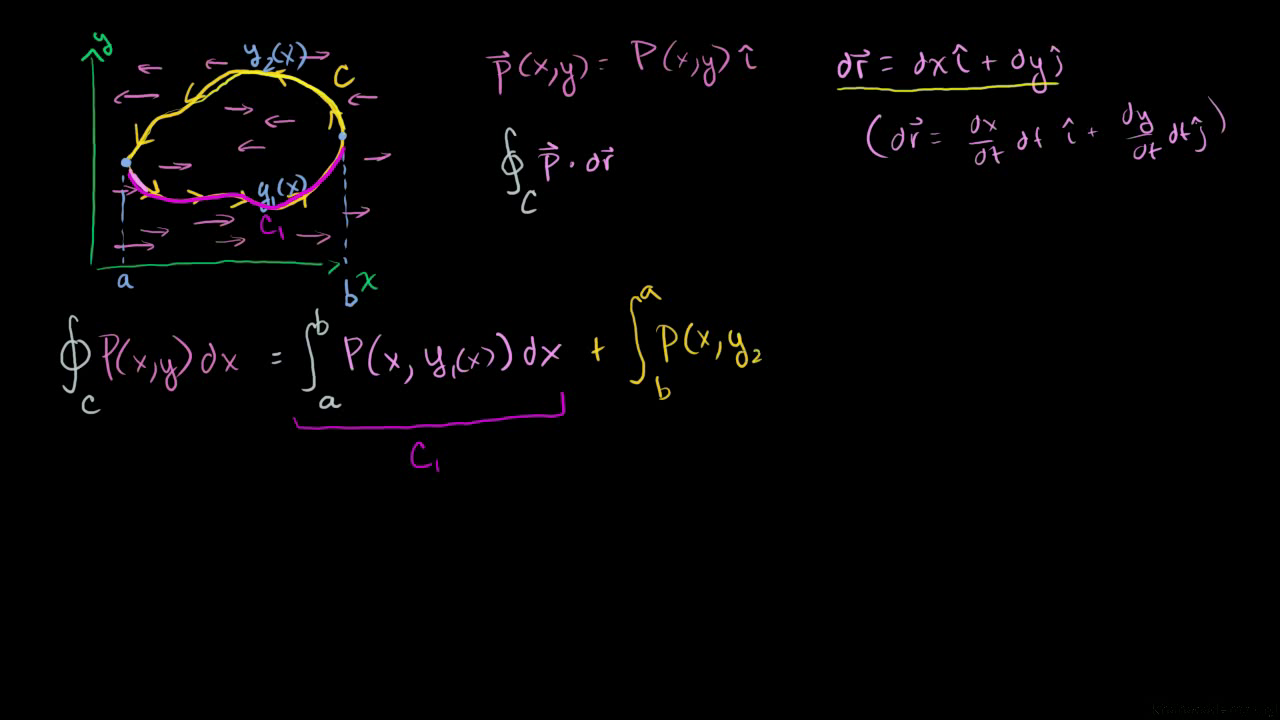 y
y₂(x)
C
y₁(x)
C₁
a
b
x
P⃗(x,y) = P(x,y) î
dr⃗ = dx î + dy ĵ
(dr⃗ = dx/dt dt î + dy/dt dt ĵ)
∮_C P⃗ · dr⃗
∮_C P(x,y) dx = ∫_a^b P(x, y₁(x)) dx + ∫_b^a P(x, y₂
C₁